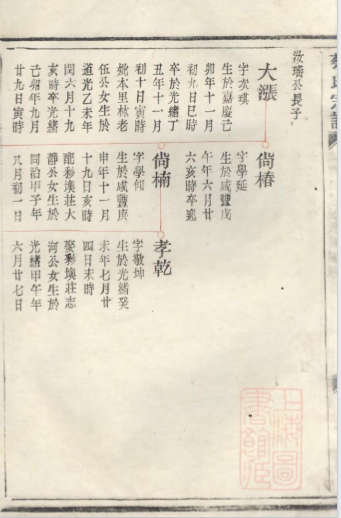 汝璜公長子
大漲
字次璜
生於嘉慶己
卯年十一月
初九日巳時
卒於光緒丁
丑年十一月
初十日寅時
娶本里林老
伍公女生於
道光乙未年
閏六月十九
亥時卒光緒
己卯年九月
廿九日寅時
尙椿
字學延
生於咸豐戊
午年六月廿
六亥時卒
尙楠
字學
生於咸豐庚
申年十一月
十九日亥時
配彩壤莊大
靜公女生於
同治甲子年
八月初一日
孝乾
字敬坤
生於光緒癸
未年七月廿
四日未時
娶彩壤莊志
河公女生於
光緒甲午年
六月廿七日
上海圖
書館